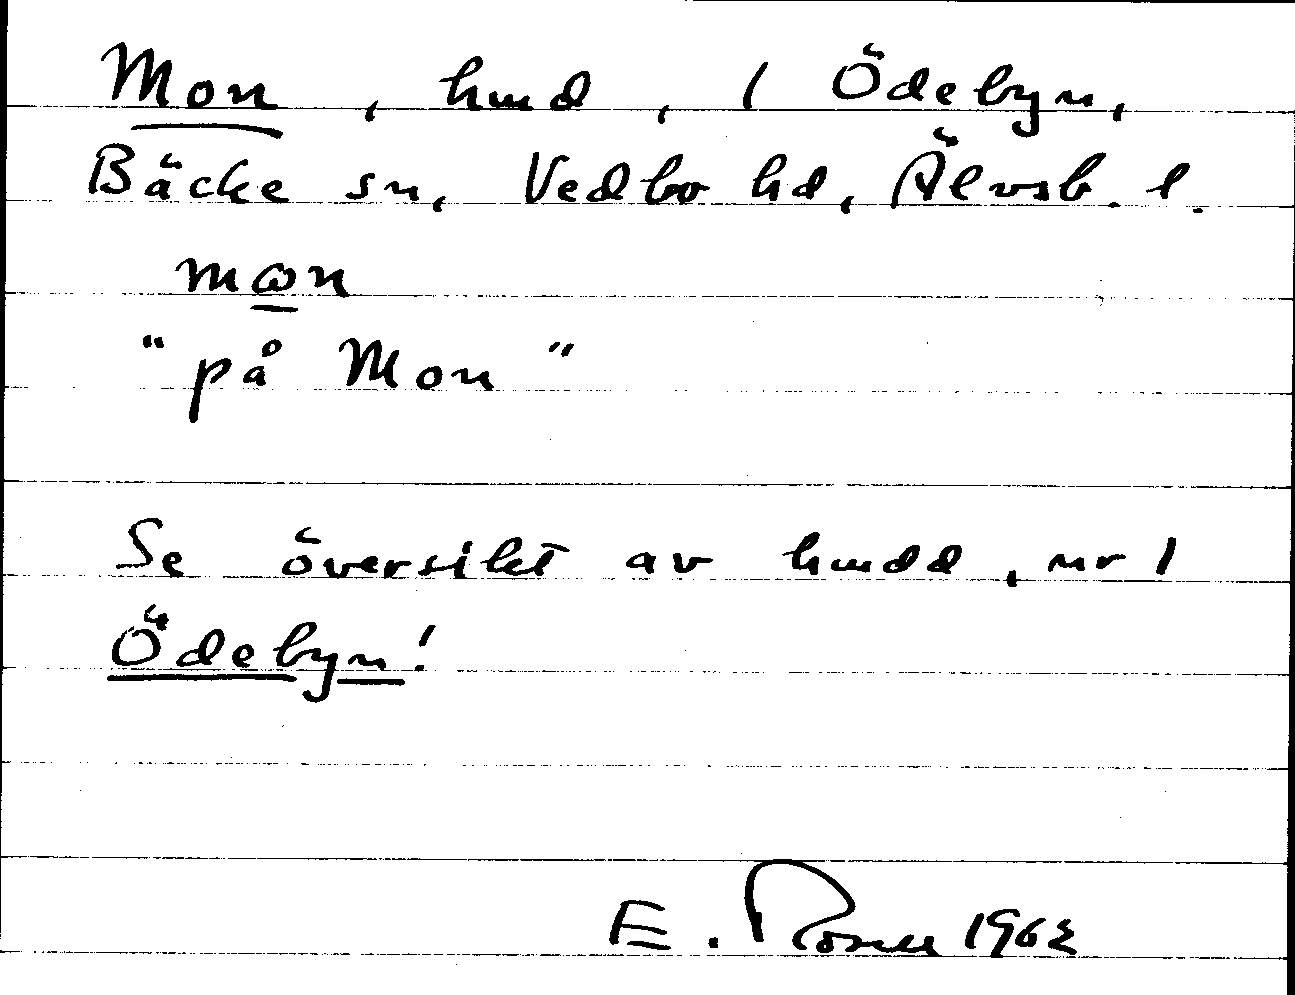 Mon, hmd, 1 Ödebyn,
Bäcke sn, Vedbo hd, Älvsb. l.
mɷn
"på Mon"
Se översikt av hmdd, nr 1
Ödebyn!
E. 1962